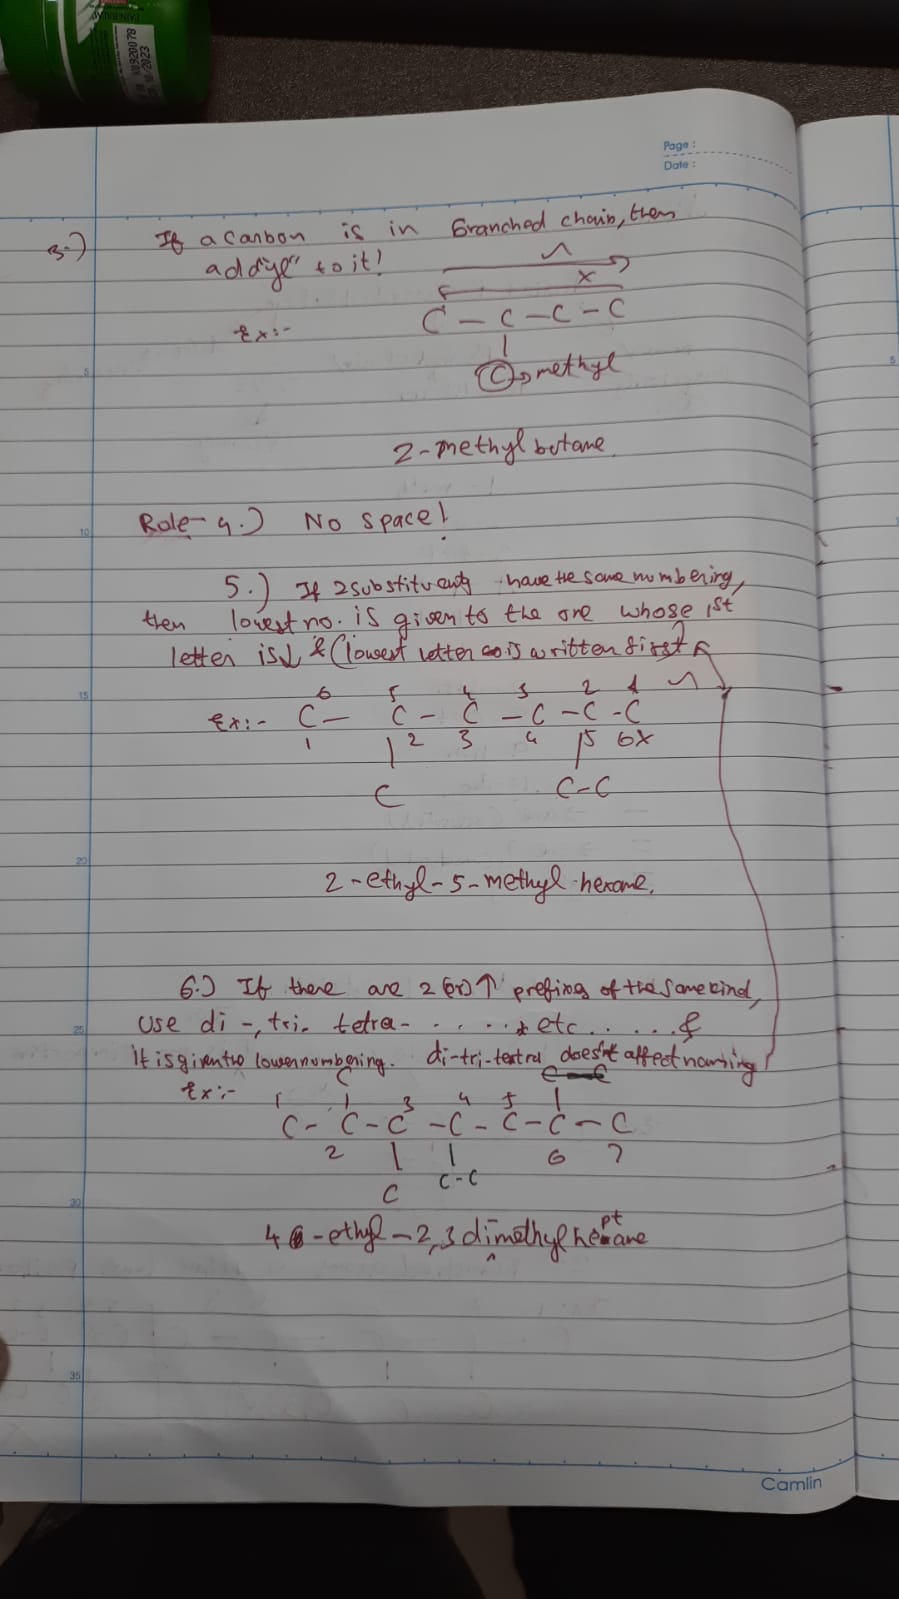 PAIN BALM
V0920078
10/2023
Page :
Date :
3.) If a carbon is in branched chain, then
add "yl" to it!
x
Ex:- C - C - C - C
C → methyl
2-methyl butane.
Rule- 4.) No space!
5.) If 2 substituents have the same numbering,
then lowest no. is given to the one whose 1st
letter is ↓ & (lowest letter is written first)
6 5 4 3 2 1
Ex:- C - C - C - C - C - C
1 2 3 4 5 6x
C C-C
2-ethyl-5-methyl hexane.
6.) If there are 2 (or) ↑ prefixes of the same kind,
use di-, tri- tetra- ..... etc ..... &
it is given the lower numbering. di-tri-tetra doesn't affect naming
Ex:- C C-C
1 3 4 5
C - C - C - C - C - C - C
2 6 7
C C-C
4 -ethyl-2,3 dimethyl heptane
5
10
15
20
25
30
35
5
Camlin